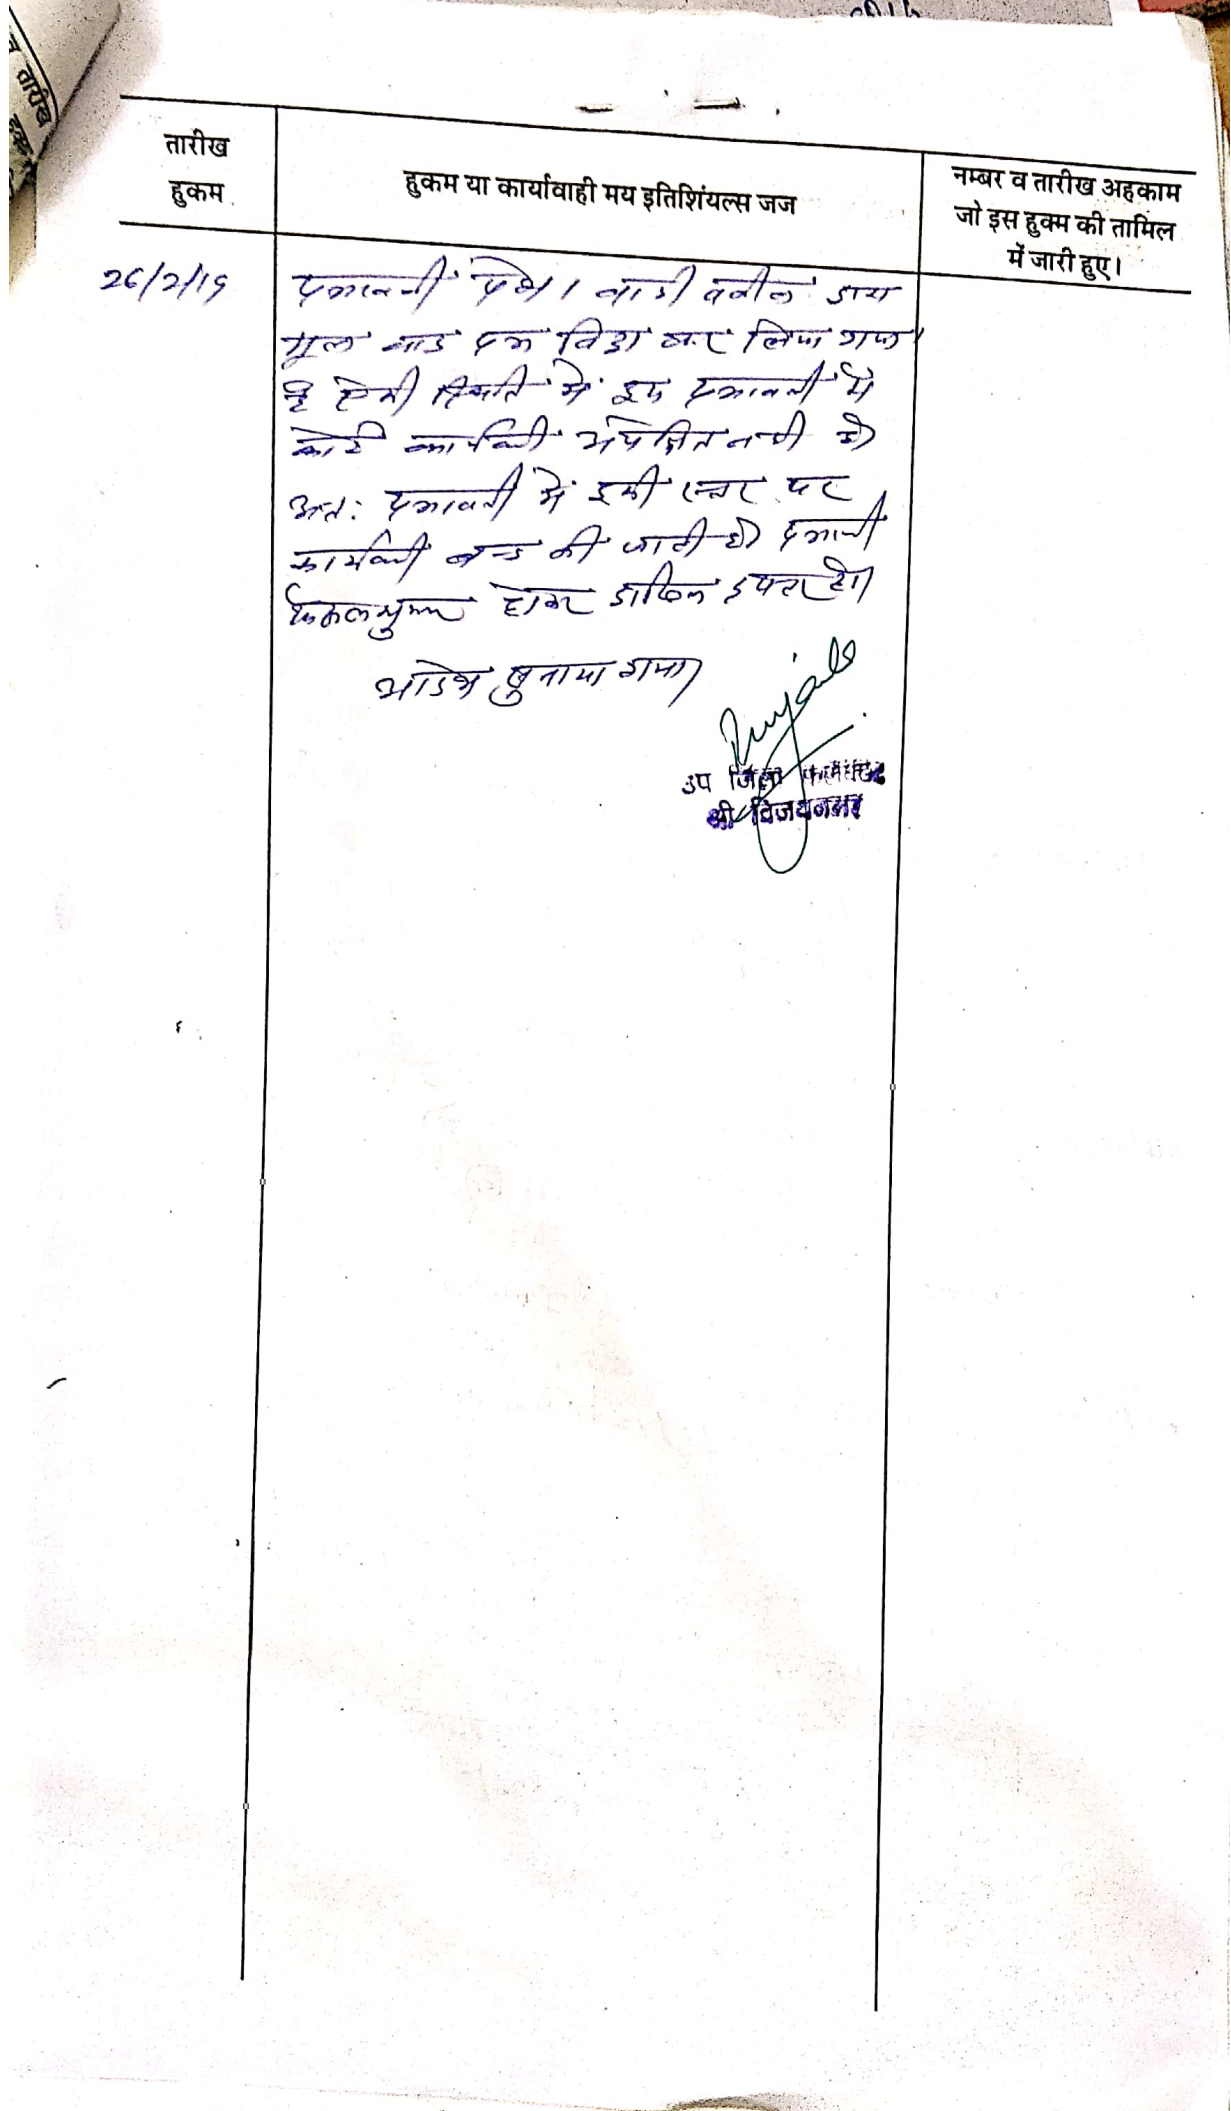 तारीख
हुकम
हुकम या कार्यावाही मय इतिशिंयल्स जज
नम्बर व तारीख अहकाम
जो इस हुक्म की तामिल
में जारी हुए।
26/2/19
पत्रावली पेश। वादी वकील द्वारा
मूल वाद पत्र विड्रा कर लिया गया
है ऐसी स्थिति में इस पत्रावली में
कोई कार्यवाही अपेक्षित नहीं है।
अतः पत्रावली में इसी स्तर पर
कार्यवाही बन्द की जाती है। पत्रावली
फैसलशुमार होकर दाखिल दफ्तर हो।
आदेश सुनाया गया।
उप जिला कलेक्टर
श्री विजयनगर
तारीख